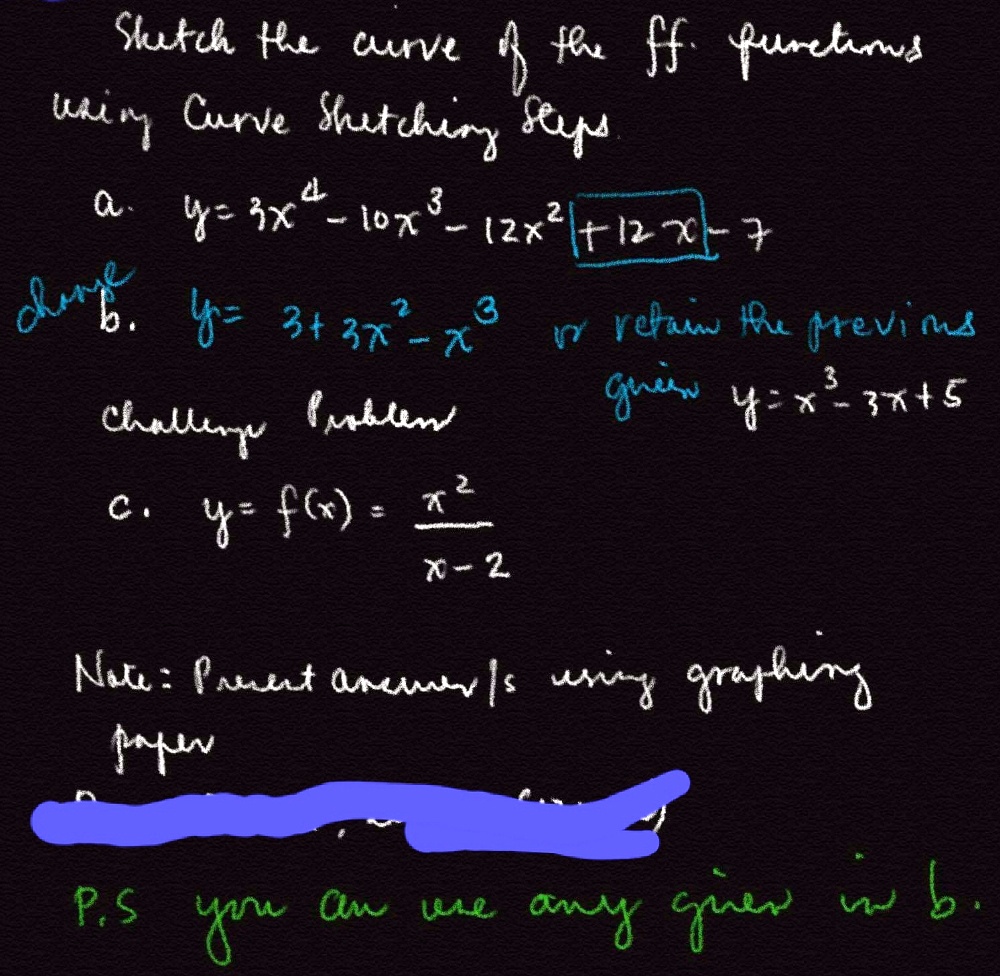 Sketch the curve of the ff. functions
using Curve Sketching Steps.
a. y = 3x⁴ - 10x³ - 12x² + 12x - 7
change
b. y = 3 + 3x² - x³ or retain the previous
given y = x³ - 3x + 5
Challenge Problem
c. y = f(x) = x² / x - 2
Note: Present answer/s using graphing
paper
P.S you can use any given in b.